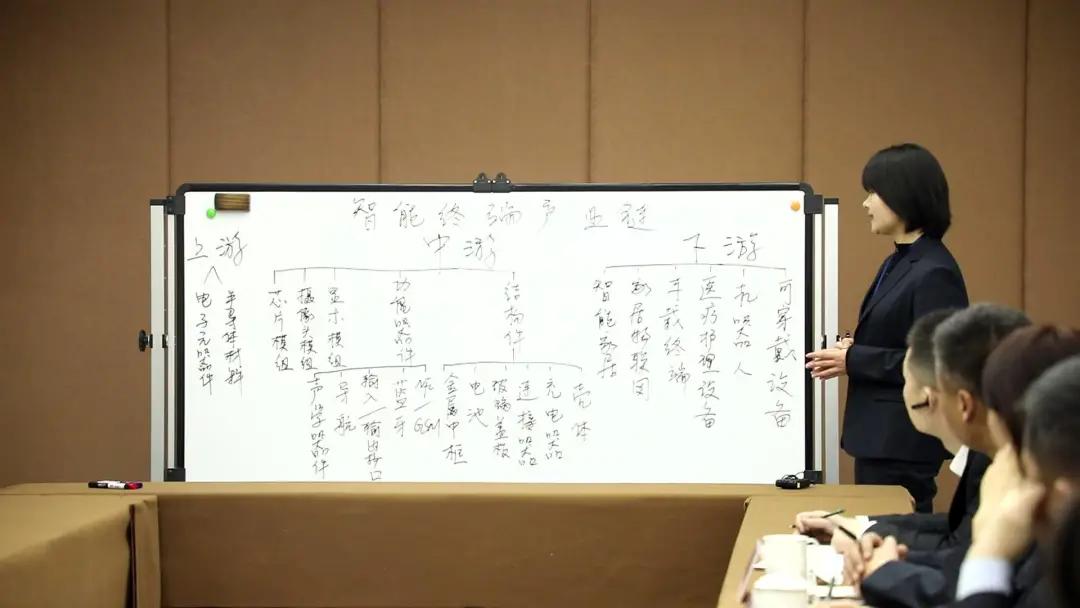 智能终端产业链
上游
电子元器件
半导体材料
中游
芯片模组
摄像头模组
显示模组
功能器件
声学器件
导航
输入/输出接口
蓝牙
/GSM
结构件
金属中框
电池
玻璃盖板
连接器
充电器
壳体
下游
智能家居
家居物联网
车载终端
医疗护理设备
机器人
可穿戴设备